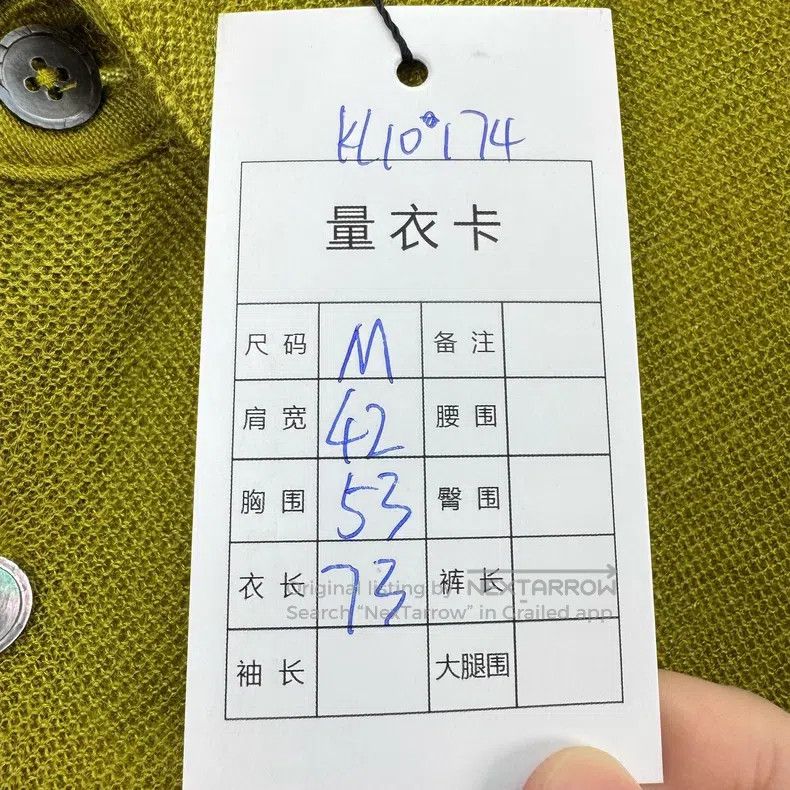 KL10•174
量衣卡
尺码 M 备注
肩宽 42 腰围
胸围 53 臀围
衣长 73 裤长
Original listing by NEXTARROW
Search "NexTarrow" in Grailed app
袖长 大腿围